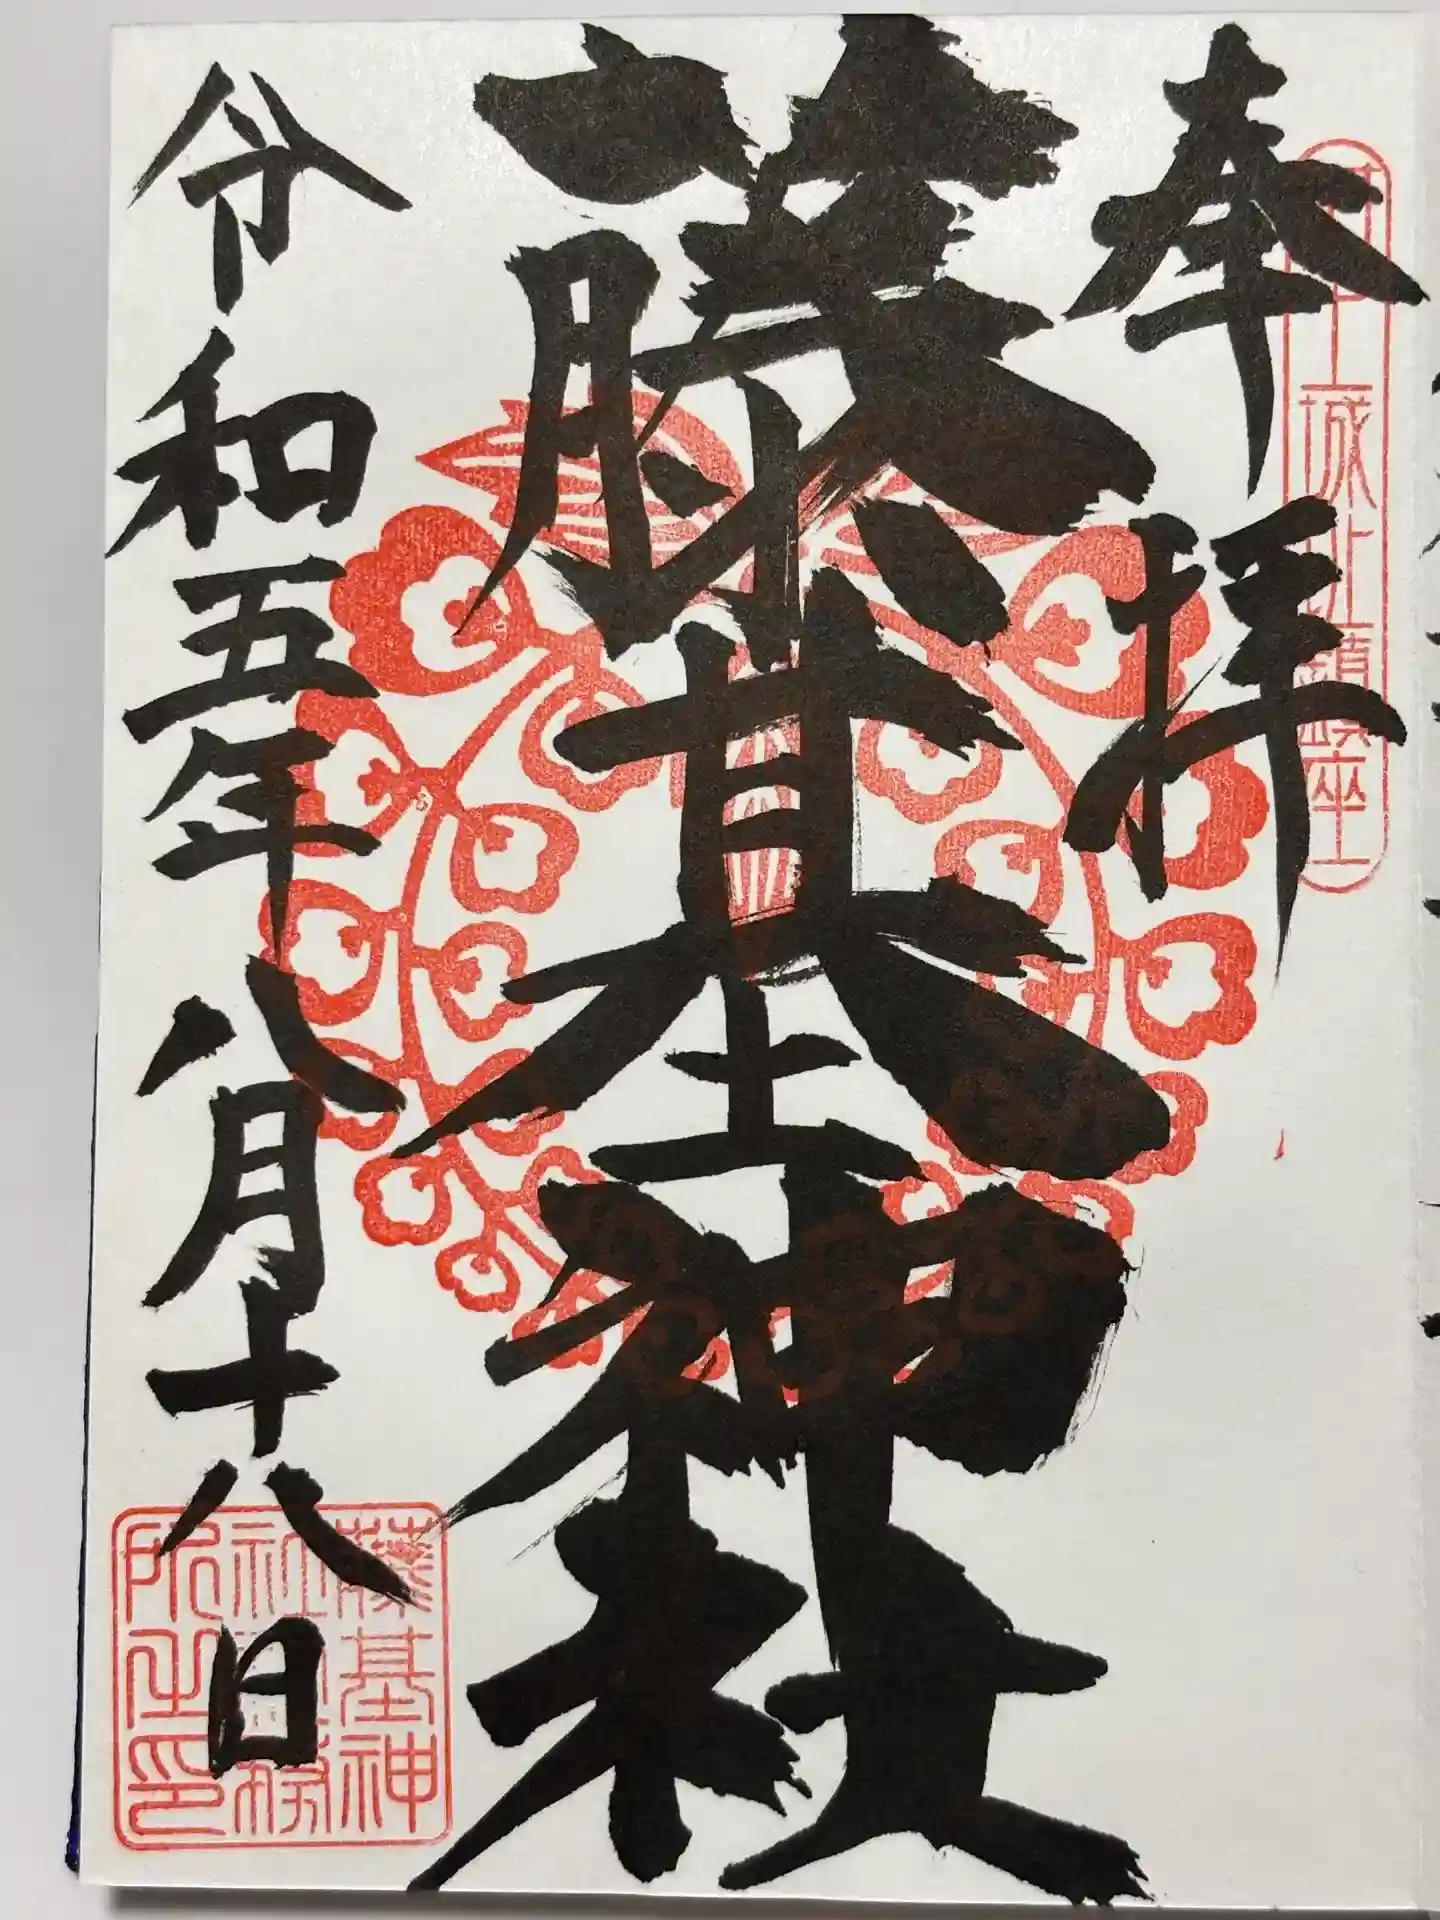 奉拝
城址鎮座
藤基神社
令和五年八月十八日
藤基神
社務
所之印